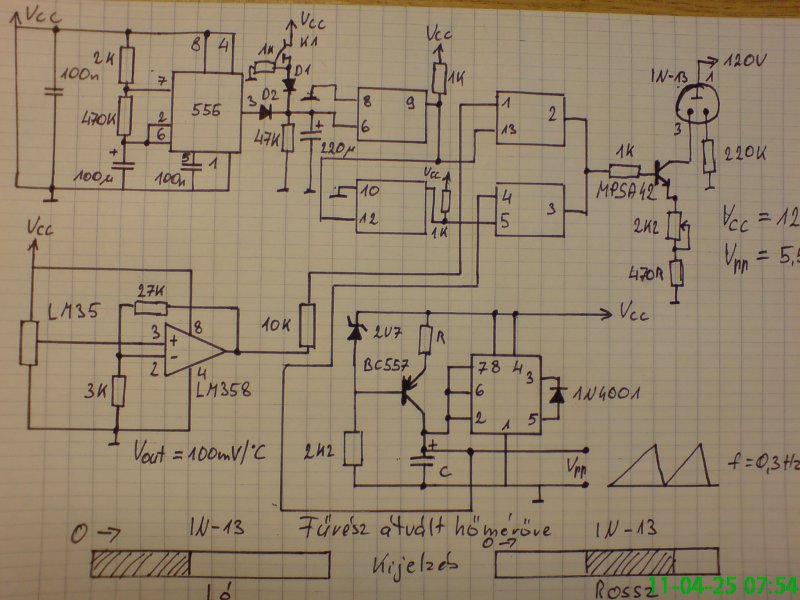 Vcc
2K
100n
470K
+
100µ
7
2
6
8
4
555
3
5
1
100n
Vcc
K1
1K
D1
D2
47K
+
220µ
8
9
6
Vcc
1K
10
12
Vcc
1K
1
13
2
4
5
3
1K
MPSA42
IN-13
1
120V
3
220K
2K2
470R
Vcc = 12
Vpp = 5,5
Vcc
LM35
27K
3
+
-
2
8
4
3K
LM358
Vout = 100mV/°C
10K
2V7
BC557
R
Vcc
7
8
4
6
2
3
5
1
1N4001
2K2
+
C
Vpp
f=0,3Hz
Fűrész átvált hőmérőve
Kijelzés
0 →
IN-13
Jó
0 →
IN-13
Rossz
11-04-25 07:54